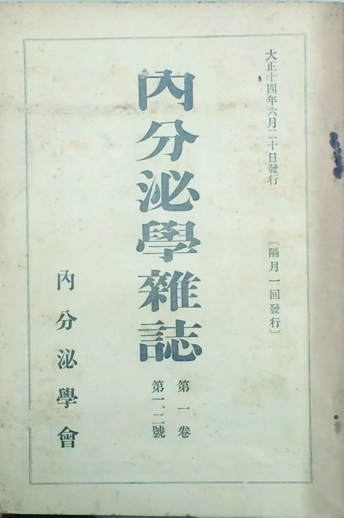 大正十四年六月二十日發行
〔隔月一回發行〕
內分泌學雜誌
第一卷
第一、二號
內分泌學會